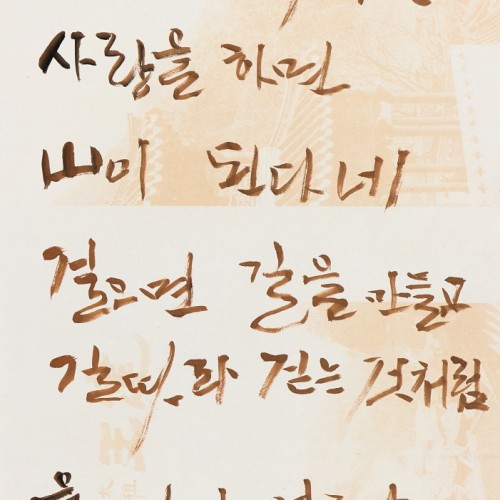 사랑을 하면
山이 된다네
걸으면 길을 만들고
길따라 걷는 것처럼